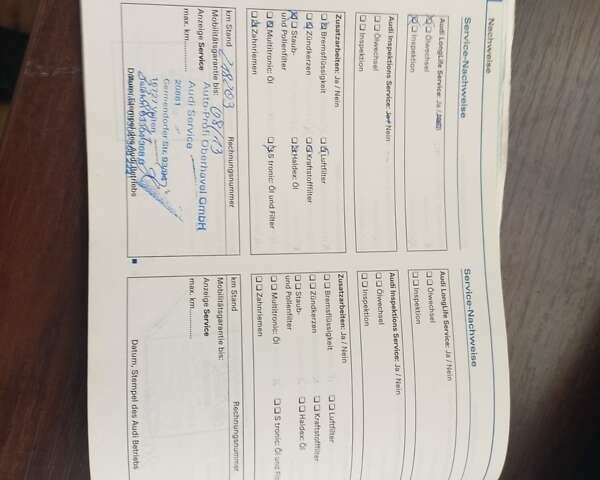 Nachweise
Service-Nachweise
Audi LongLife Service: Ja /
Ölwechsel
Inspektion
Audi Inspektions Service: Ja / Nein
Ölwechsel
Inspektion
Zusatzarbeiten: Ja / Nein
Bremsflüssigkeit
Luftfilter
Zündkerzen
Kraftstofffilter
Staub-
und Pollenfilter
Haldex: Öl
Multitronic: Öl
S tronic: Öl und Filter
Zahnriemen
km Stand
Rechnungsnummer
Mobilitätsgarantie bis: 08/13
Anzeige Service
max. km
Auto-Profi Oberhavel GmbH
Audi Service
20881
Germendorfer Str.
16727 Velten
Datum, Stempel des Audi Betriebs
Service-Nachweise
Audi LongLife Service: Ja / Nein
Ölwechsel
Inspektion
Audi Inspektions Service: Ja / Nein
Ölwechsel
Inspektion
Zusatzarbeiten: Ja / Nein
Bremsflüssigkeit
Luftfilter
Zündkerzen
Kraftstofffilter
Staub-
und Pollenfilter
Haldex: Öl
Multitronic: Öl
S tronic: Öl und
Zahnriemen
km Stand
Rechnungsnummer
Mobilitätsgarantie bis:
Anzeige Service
max. km
Datum, Stempel des Audi Betriebs